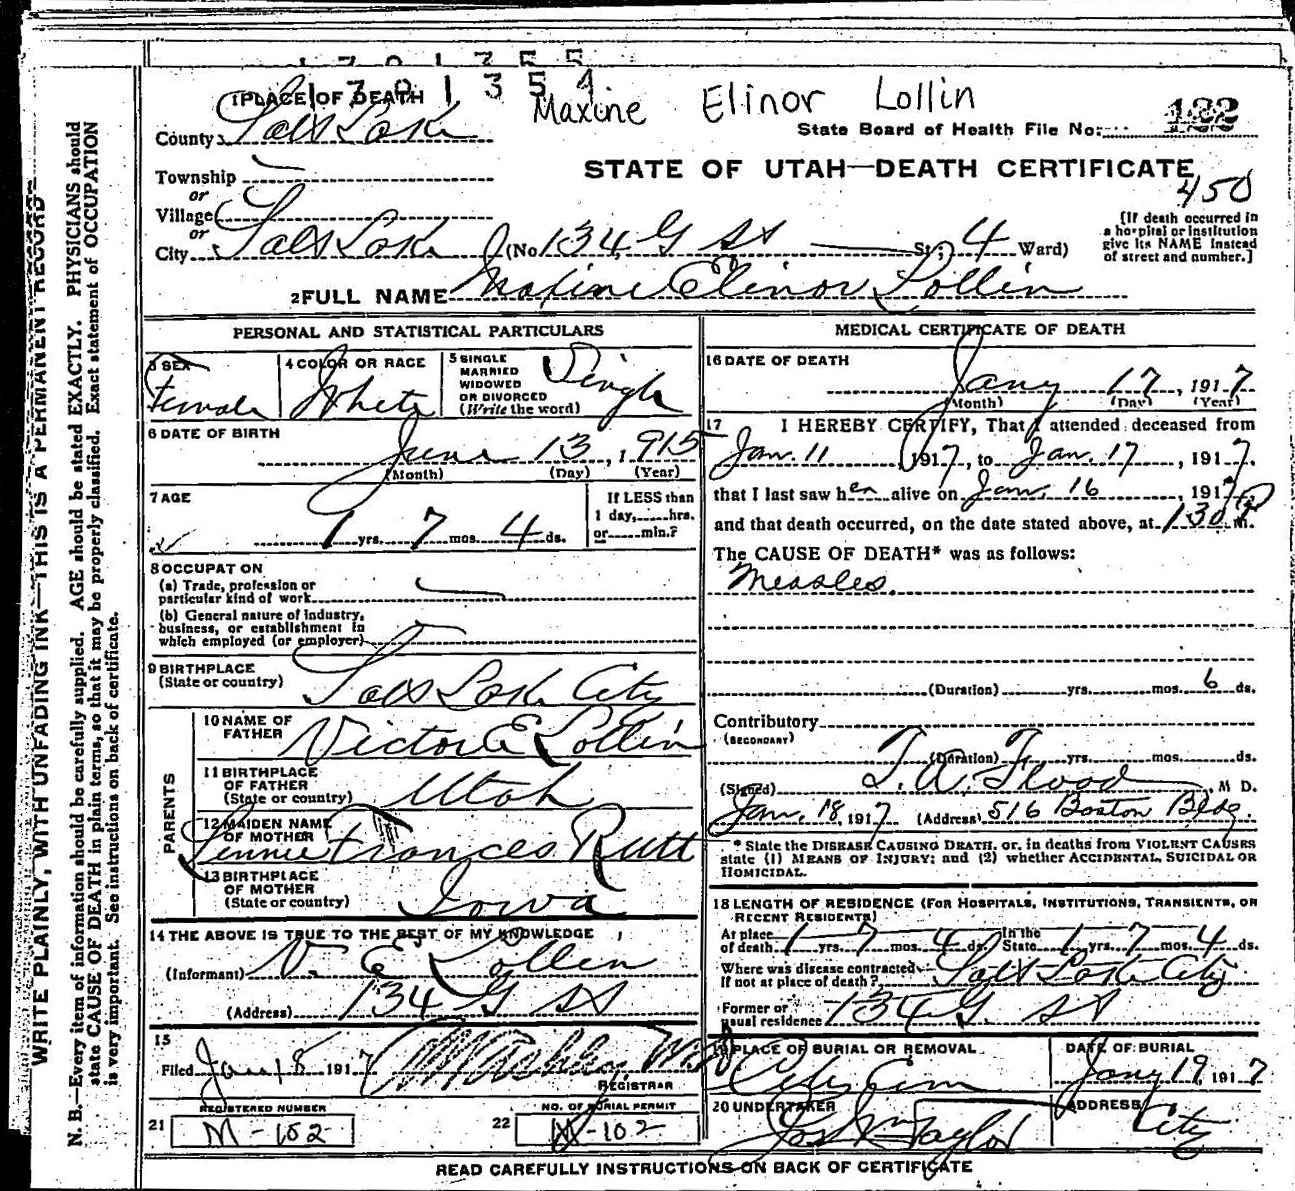 1 7 0 1 3 5 5
1 7 0 1 3 5 4
1 PLACE OF DEATH
Maxine Elinor Lollin
County Salt Lake
State Board of Health File No. 122
STATE OF UTAH—DEATH CERTIFICATE
450
Township
or
Village
or
City Salt Lake (No. 134 G St St; 4 Ward)
(If death occurred in a hospital or institution give its NAME instead of street and number.]
2 FULL NAME Maxine Elinor Lollin
PERSONAL AND STATISTICAL PARTICULARS
3 SEX Female
4 COLOR OR RACE White
5 SINGLE MARRIED WIDOWED OR DIVORCED (Write the word) Single
6 DATE OF BIRTH June 13, 1915
(Month) (Day) (Year)
7 AGE 1 yrs. 7 mos. 4 ds.
If LESS than 1 day,.....hrs. or.....min.?
8 OCCUPATION
(a) Trade, profession or particular kind of work
(b) General nature of industry, business, or establishment in which employed (or employer)
9 BIRTHPLACE (State or country) Salt Lake City
PARENTS
10 NAME OF FATHER Victor E Lollin
11 BIRTHPLACE OF FATHER (State or country) Utah
12 MAIDEN NAME OF MOTHER Lennie Frances Rutt
13 BIRTHPLACE OF MOTHER (State or country) Iowa
14 THE ABOVE IS TRUE TO THE BEST OF MY KNOWLEDGE
(Informant) V. E. Lollin
(Address) 134 G St
15
Filed Jan 18 1917
REGISTRAR
REGISTERED NUMBER
21 M-102
NO. OF BURIAL PERMIT
22 M-102
MEDICAL CERTIFICATE OF DEATH
16 DATE OF DEATH
Jany 17, 1917
(Month) (Day) (Year)
17 I HEREBY CERTIFY, That I attended deceased from
Jan. 11 1917, to Jan. 17, 1917.
that I last saw her alive on Jan. 16, 1917,
and that death occurred, on the date stated above, at 1 30 P m.
The CAUSE OF DEATH* was as follows:
Measles.
(Duration) yrs. mos. 6 ds.
Contributory
(SECONDARY)
(Duration) yrs. mos. ds.
(Signed) T. A. Flood, M D.
Jan. 18, 1917 (Address) 516 Boston Bldg.
* State the DISEASE CAUSING DEATH, or, in deaths from VIOLENT CAUSES
state (1) MEANS OF INJURY; and (2) whether ACCIDENTAL, SUICIDAL OR
HOMICIDAL.
18 LENGTH OF RESIDENCE (FOR HOSPITALS, INSTITUTIONS, TRANSIENTS, OR
RECENT RESIDENTS)
At place of death 1 yrs. 7 mos. 4 ds. In the State 1 yrs. 7 mos. 4 ds.
Where was disease contracted If not at place of death? Salt Lake City
Former or usual residence 134 G. St
19 PLACE OF BURIAL OR REMOVAL City Cem
DATE OF BURIAL Jany 19, 1917
20 UNDERTAKER Jos Wm Taylor
ADDRESS City
READ CAREFULLY INSTRUCTIONS ON BACK OF CERTIFICATE
WRITE PLAINLY, WITH UNFADING INK—THIS IS A PERMANENT RECORD
N. B.—Every item of information should be carefully supplied. AGE should be stated EXACTLY. PHYSICIANS should
state CAUSE OF DEATH in plain terms, so that it may be properly classified. Exact statement of OCCUPATION
is very important. See instructions on back of certificate.